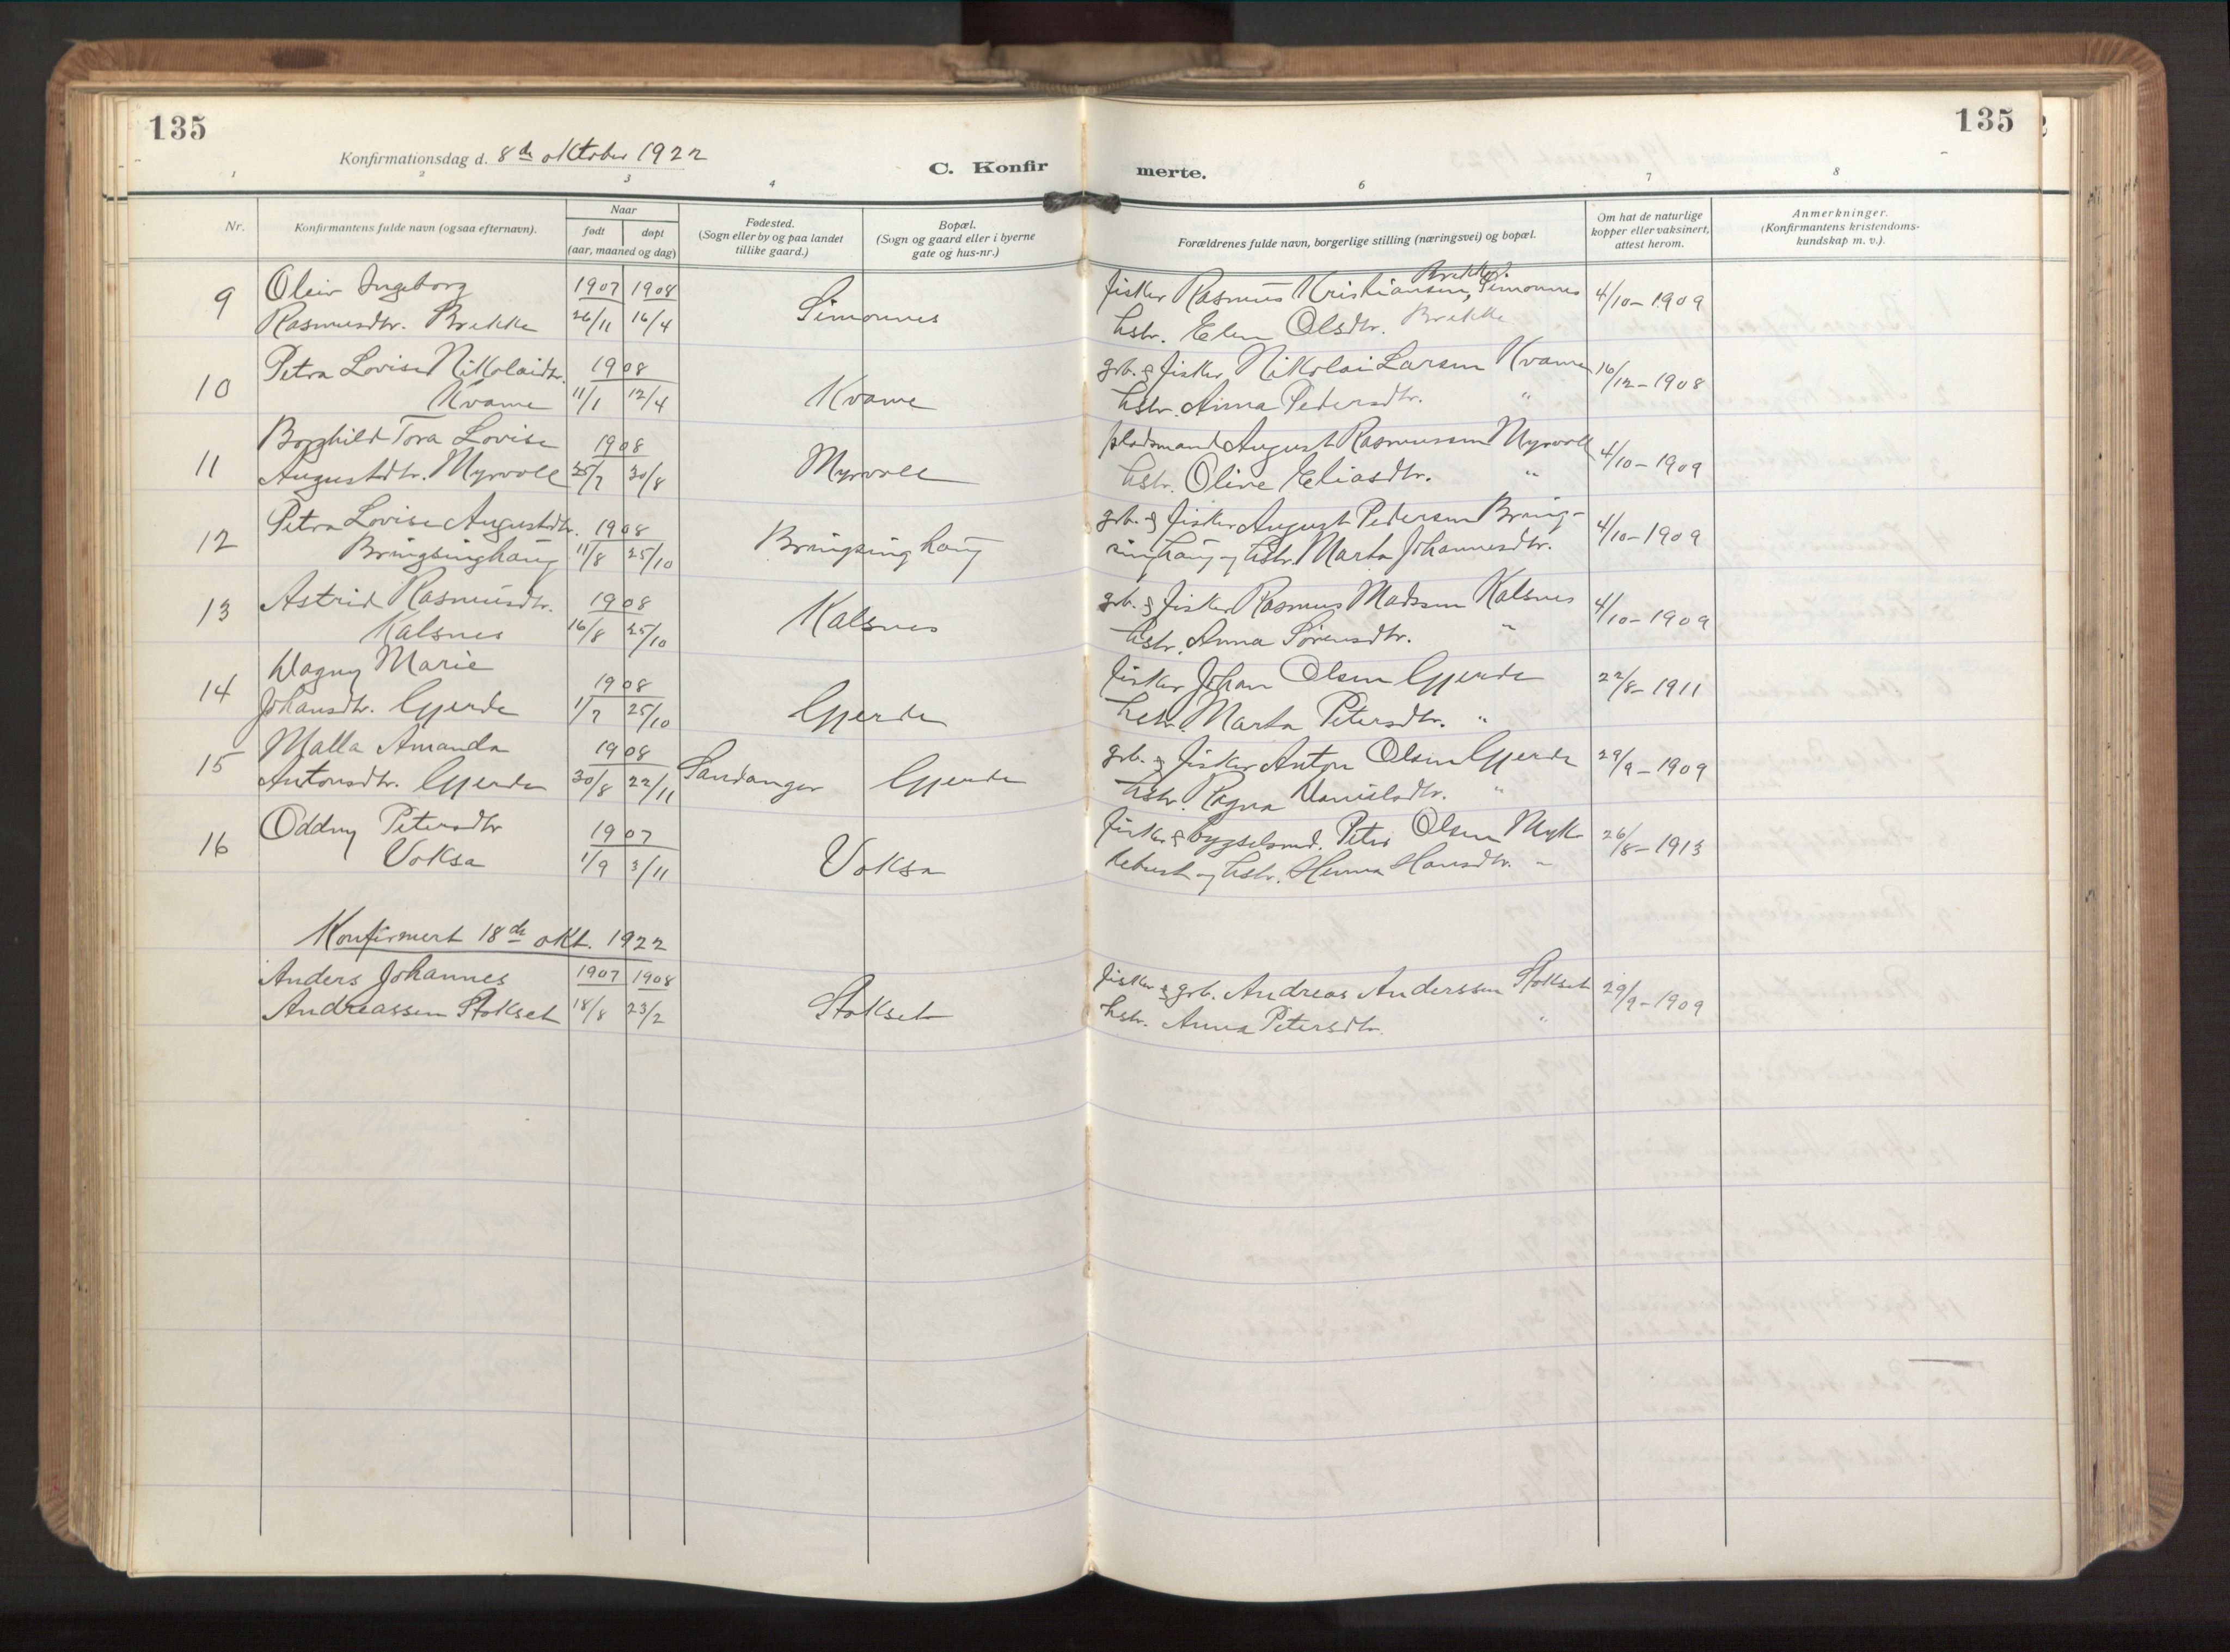 135
135
Konfirmationsdag d. 8de oktober 1922
C. Konfir
merte.
1 2 3 4 6 7 8
Nr.
Konfirmantens fulde navn (ogsaa efternavn).
Naar
født døpt
(aar, maaned og dag)
Fødested.
(Sogn eller by og paa landet
tillike gaard.)
Bopæl.
(Sogn og gaard eller i byerne
gate og hus-nr.)
Forældrenes fulde navn, borgerlige stilling (næringsvei) og bopæl.
Om hat de naturlige
kopper eller vaksinert,
attest herom.
Anmerkninger.
(Konfirmantens kristendoms-
kundskap m. v.).
9 Ingeborg 1907 1908 Simonnes fisker Rasmus Kristiansen, Simonnes Brekke. 4/10-1909
Rasmusdtr. Brekke 26/11 16/4 hstr. Elen Olsdtr. Brekke
10 Petra Lovise Nikolaidtr. 1908 grb. & fisker Nikolai Larsen Kvame 16/12-1908
Kvame 11/1 12/4 Kvame hstr. Anna Pedersdtr. "
11 Borghild Tora Lovise 1908 pladsmand August Rasmussen Myrvoll 4/10-1909
Augustdtr. Myrvoll 25/7 30/8 Myrvoll hstr. Olive Eliasdtr. "
12 Petra Lovise Augustdtr. 1908 grb. & fisker August Pedersen Bring- 4/10-1909
Bringsinghaug 11/8 25/10 Bringsinghaug singhaug og hstr. Marta Johannesdtr.
13 Astrid Rasmusdtr. 1908 grb. & fisker Rasmus Madsen Kalsnes 4/10-1909
Kalsnes 16/8 25/10 Kalsnes hstr. Anna Sørensdtr. "
14 Dagny Marie 1908 fisker Johan Olsen Gjerde 22/8-1911
Johansdtr. Gjerde 1/7 25/10 Gjerde hstr. Marta Petersdtr. "
15 Malla Amanda 1908 grb. & fisker Anton Olsen Gjerde 29/9-1909
Antonsdtr. Gjerde 30/8 22/11 Sandanger Gjerde hstr. Ragna "
16 Oddny Petersdtr 1907 fisker & bygselsmd. Peter Olsen Mykle- 26/8-1913
Voksa 1/9 3/11 Voksa bust og hstr. Hansdtr. "
Konfirmert 18de okt. 1922
Anders Johannes 1907 1908 fisker & grb. Andreas Anderssen Stokset 29/9-1909
Andreassen Stokset 18/8 23/2 Stokset hstr. Anna Petersdtr. "